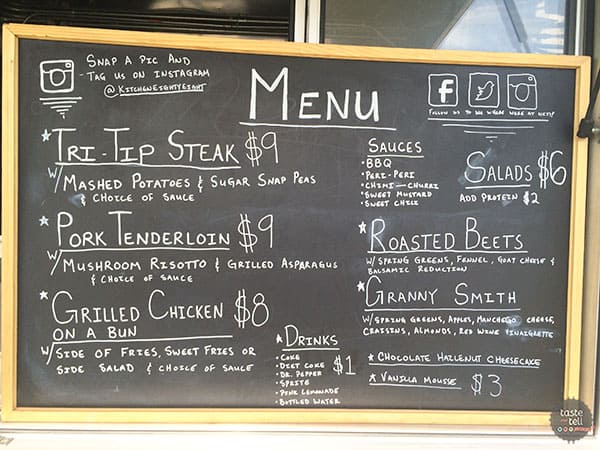 SNAP A PIC AND
TAG US ON INSTAGRAM
@KITCHENEIGHTYEIGHT
MENU
FOLLOW US TO SEE WHERE WE'RE AT NEXT!
* TRI-TIP STEAK $9
W/ MASHED POTATOES & SUGAR SNAP PEAS
& CHOICE OF SAUCE
* PORK TENDERLOIN $9
W/ MUSHROOM RISOTTO & GRILLED ASPARAGUS
& CHOICE OF SAUCE
* GRILLED CHICKEN $8
ON A BUN
W/ SIDE OF FRIES, SWEET FRIES OR
SIDE SALAD & CHOICE OF SAUCE
SAUCES
• BBQ
• PERI-PERI
• CHIMI-CHURRI
• SWEET MUSTARD
• SWEET CHILI
* DRINKS
• COKE
• DIET COKE $1
• DR. PEPPER
• SPRITE
• PINK LEMONADE
• BOTTLED WATER
SALADS $6
ADD PROTEIN $2
* ROASTED BEETS
W/ SPRING GREENS, FENNEL, GOAT CHEESE &
BALSAMIC REDUCTION
* GRANNY SMITH
W/ SPRING GREENS, APPLES, MANCHEGO CHEESE,
CRAISINS, ALMONDS, RED WINE VINAIGRETTE
* CHOCOLATE HAZLENUT CHEESECAKE
* VANILLA MOUSSE $3
taste
and
tell